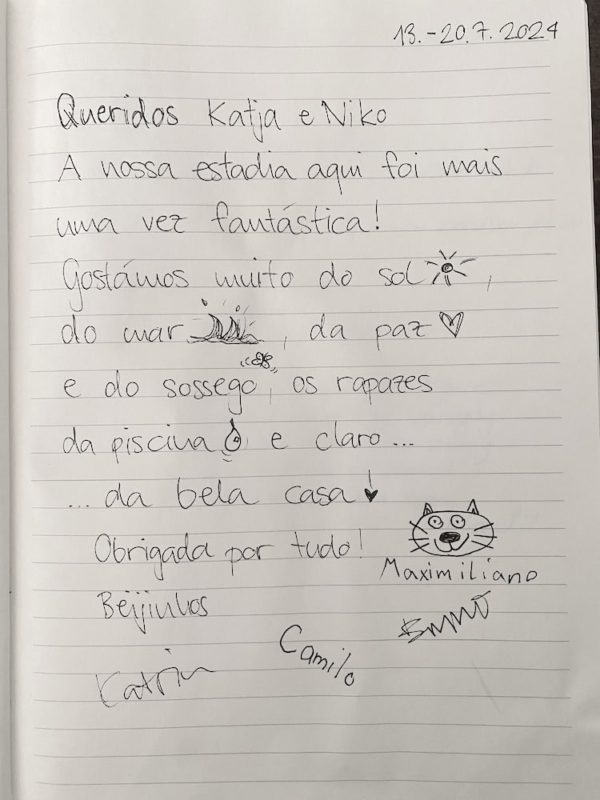 13.-20.7.2024
Queridos Katja e Niko
A nossa estadia aqui foi mais
uma vez fantástica!
Gostámos muito do sol,
do mar, da paz
e do sossego, os rapazes
da piscina e claro...
...da bela casa!
Obrigada por tudo!
Maximiliano
Beijinhos
Camilo
Katrin